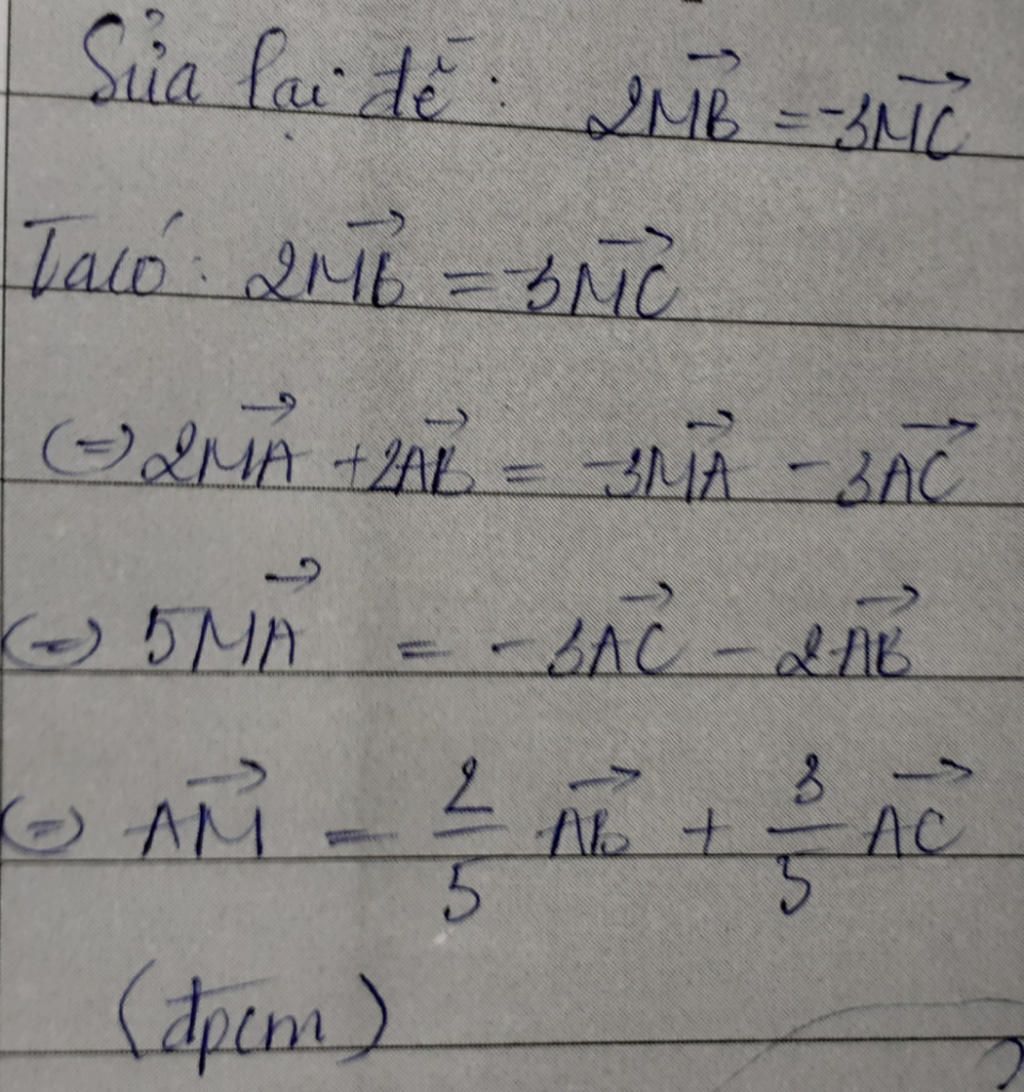 Sửa lại đề: 2MB⃗ = -3MC⃗
Ta có: 2MB⃗ = -3MC⃗
(=) 2MA⃗ + 2AB⃗ = -3MA⃗ - 3AC⃗
(=) 5MA⃗ = -3AC⃗ - 2AB⃗
(=) AM⃗ = 2/5 AB⃗ + 3/5 AC⃗
(đpcm)